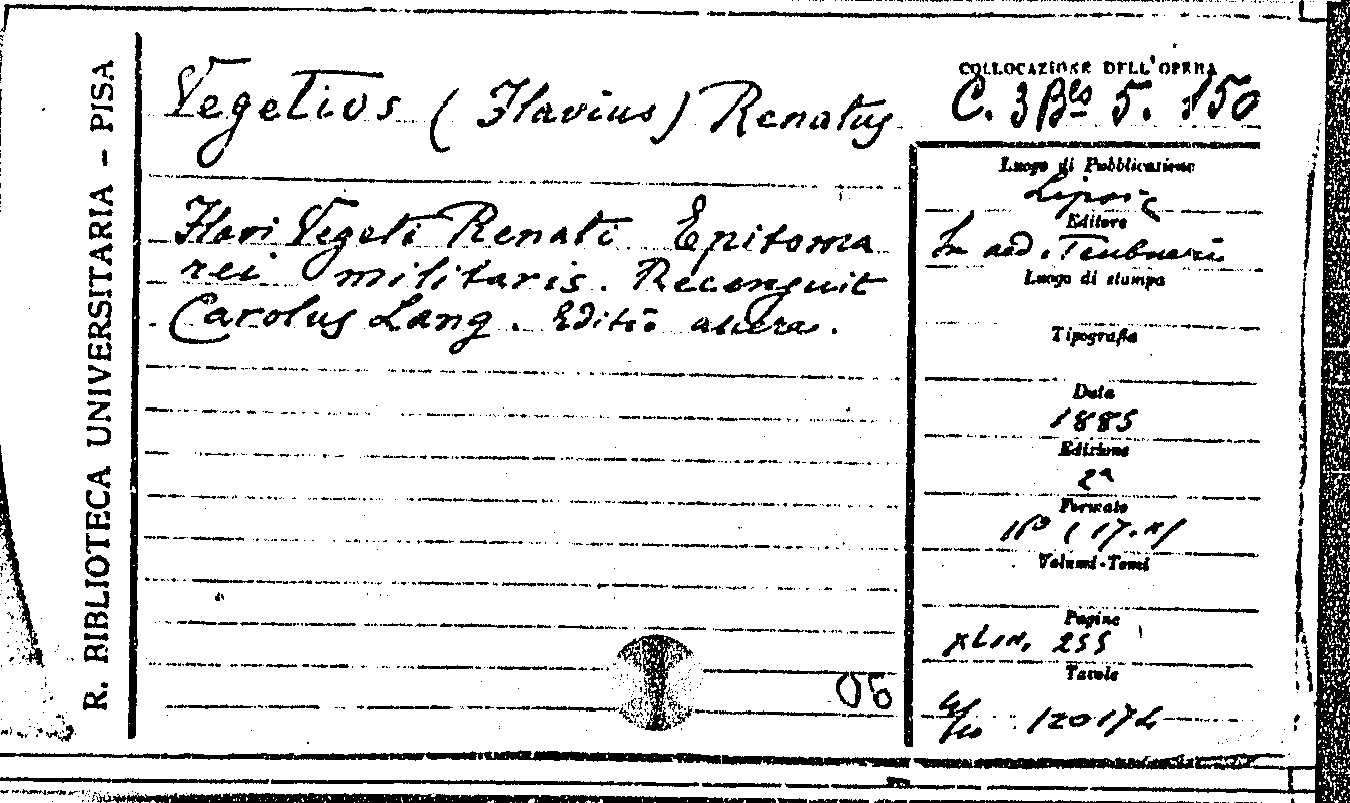 R. BIBLIOTECA UNIVERSITARIA - PISA
Vegetius (Flavius) Renatus
Flavi Vegeti Renati Epitoma
rei militaris. Recensuit
Carolus Lang. Editio altera.
06
COLLOCAZIONE DELL'OPERA
C. 3 Bis 5. 150
Luogo di Pubblicazione
Lipsia
Editore
In aed. Teubneri
Luogo di stampa
Tipografia
Data
1885
Edizione
2ª
Formato
Volumi-Tomi
Pagine
255
Tavole